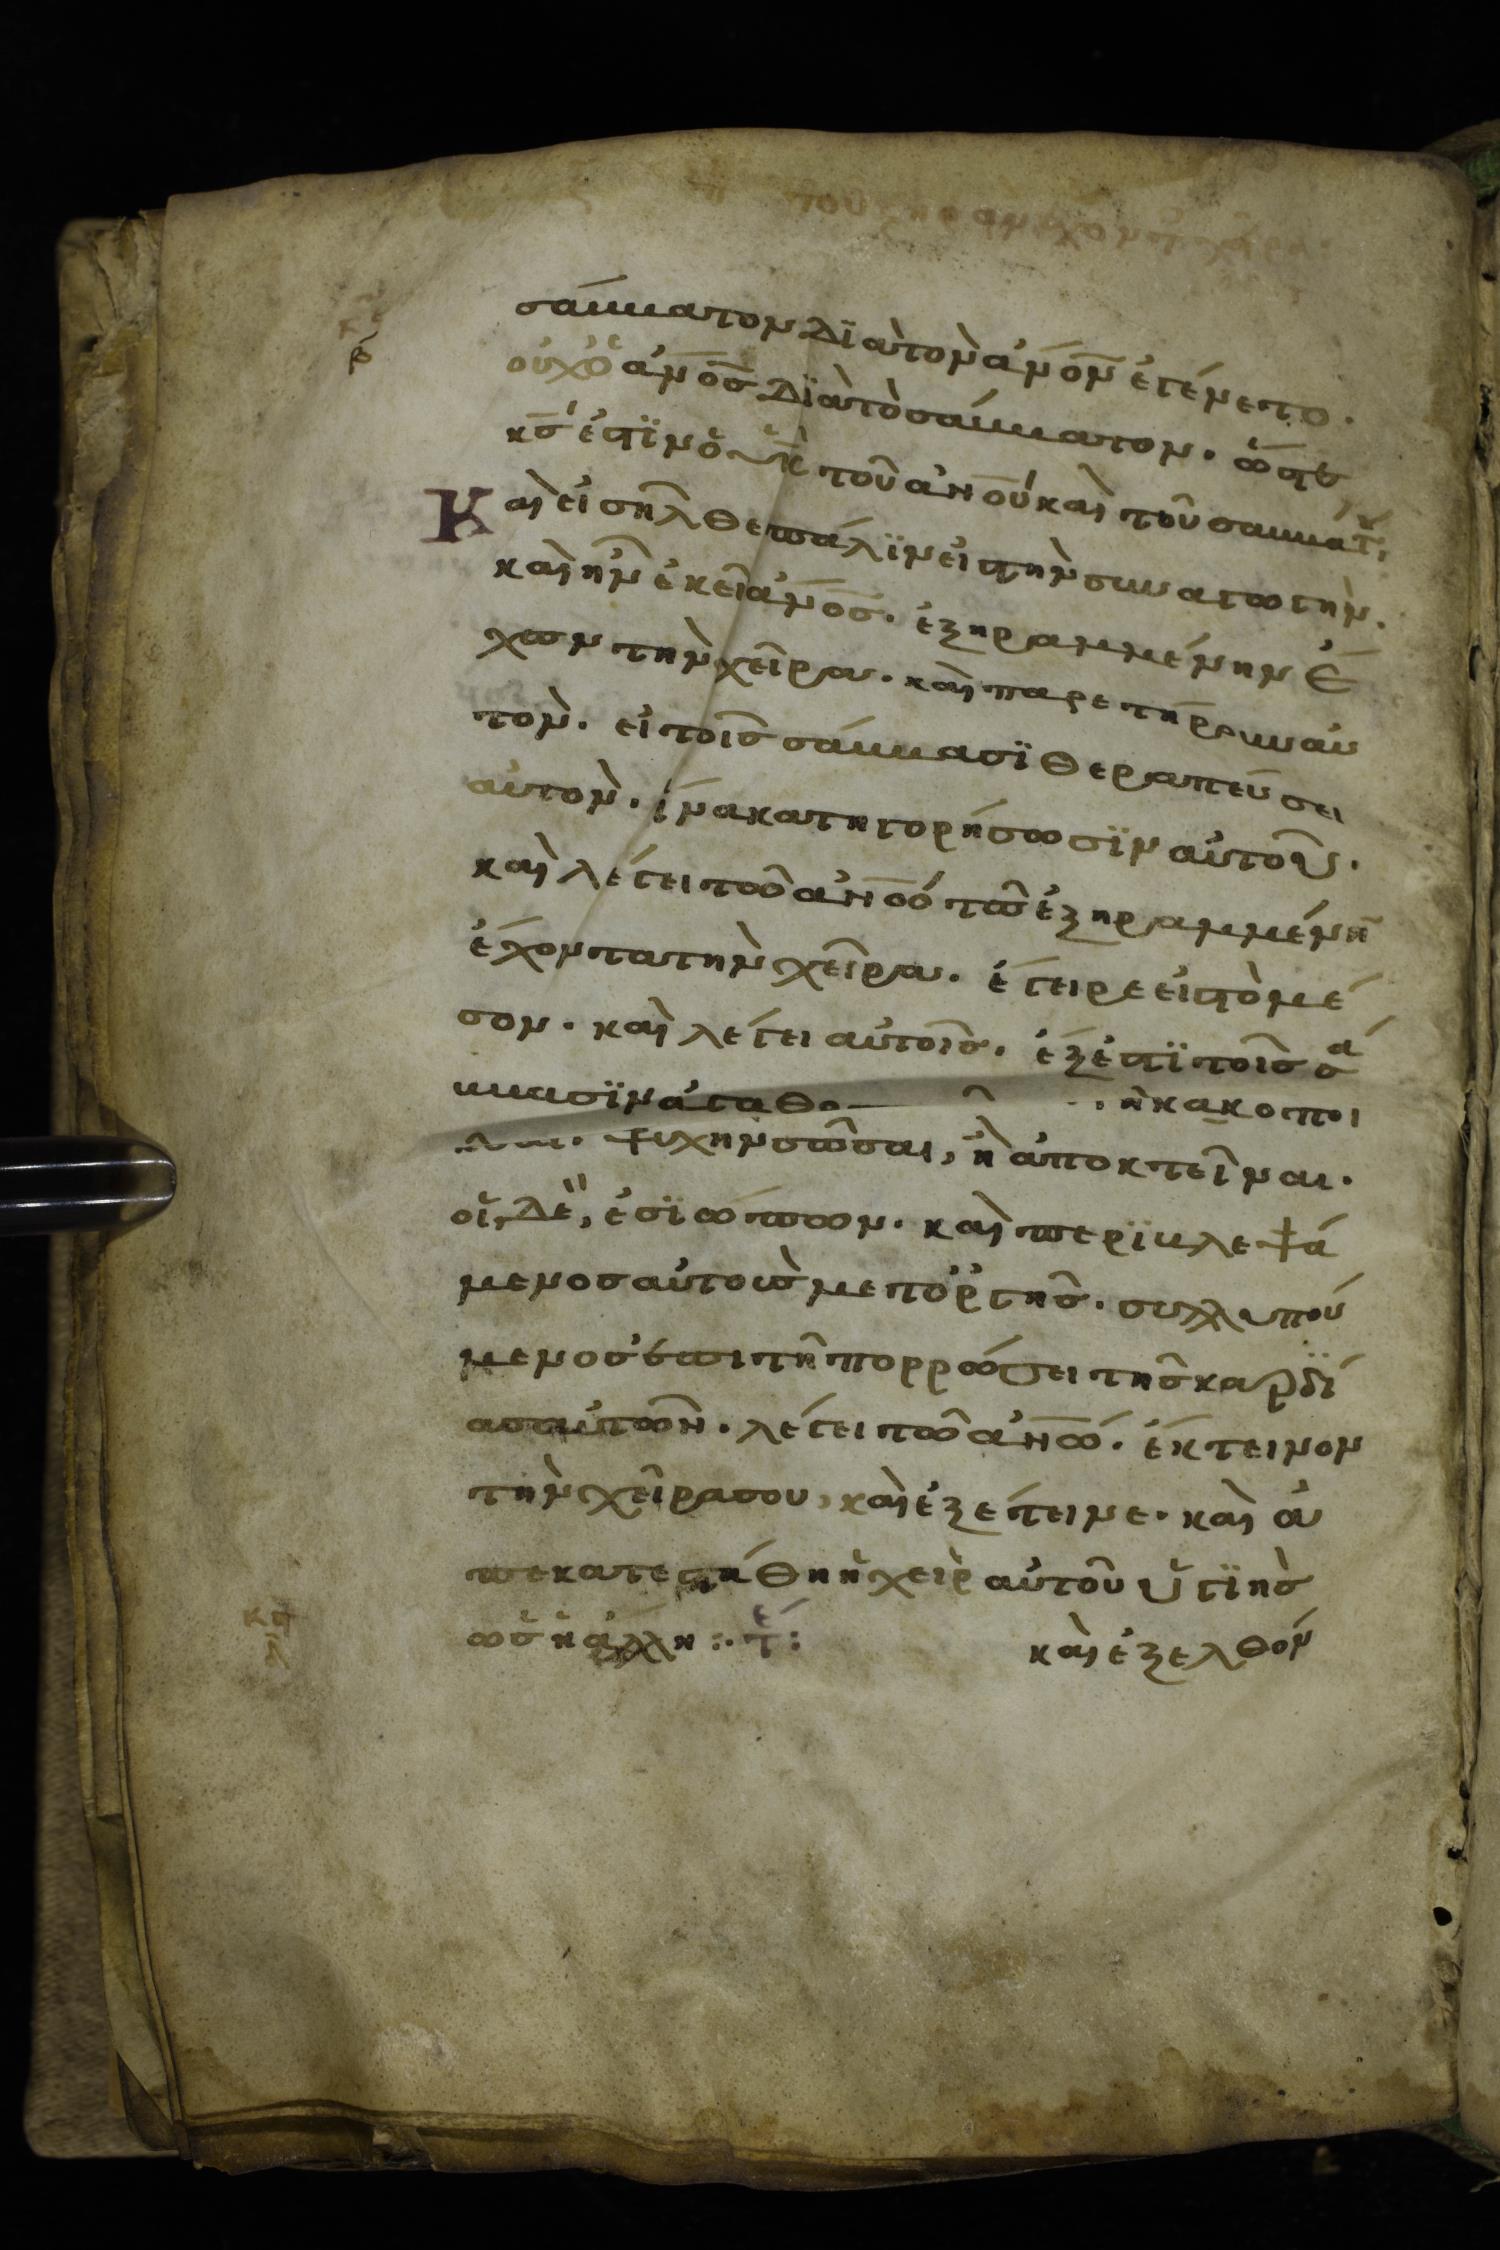 σάββατον διὰ τὸν ἀ̅ν̅ο̅ν̅ ἐγένετο.
οὐχ ὁ ἀ̅ν̅ο̅ς̅ διὰ τὸ σάββατον. ὥστε
κ̅ς̅ ἐστὶν ὁ υ̅ς̅ τοῦ ἀ̅ν̅ο̅υ̅ καὶ τοῦ σαββάτ
Καὶ εἰσῆλθε πάλιν εἰς τὴν συναγωγὴν.
καὶ ἦν ἐκεῖ ἀ̅ν̅ο̅ς̅. ἐξηραμμένην ἔ
χων τὴν χεῖρα. καὶ παρετήρουν αὐ
τὸν. εἰ τοῖς σάββασι θεραπεύσει
αὐτὸν. ἵνα κατηγορήσωσιν αὐτοῦ.
καὶ λέγει τῶ ἀ̅ν̅ω̅ τῶ ἐξηραμμένην
ἔχοντα τὴν χεῖρα. ἔγειρε εἰς τὸ μέ
σον. καὶ λέγει αὐτοῖς. ἔξεστι τοῖς σά
ββασιν ἀγαθο ἢ κακοποι
ψυχὴν σῶσαι, ἢ ἀποκτεῖναι.
οἱ, δὲ, ἐσιώπων. καὶ περιβλεψά
μενος αὐτοὺς μετ᾽ ὀργῆς. συλλυπού
μενος ἐπι τῆ πορρώσει τῆς καρδί
ας αὐτῶν. λέγει τῶ ἀ̅ν̅ω̅. ἔκτεινον
τὴν χεῖρα σου, καὶ ἐξέτεινε. καὶ ἀ
πεκατεστάθη ἡ χεὶρ αὐτοῦ ὑγιὴς
ὡς ἡ ἄλλη :. τε : καὶ ἐξελθόν